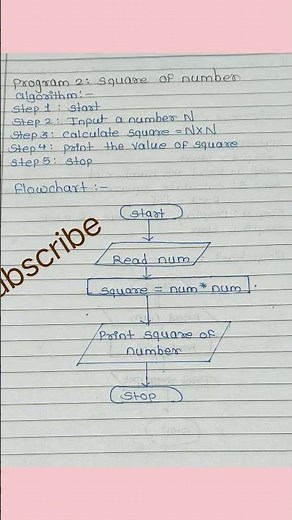 Program 2: square of number
algorithm:-
Step 1: start
Step 2: Input a number N
Step 3: calculate square = N×N
Step 4: print the value of square
Step 5: stop
Flowchart :-
start
Read num
square = num * num
Print square of
number
stop
ubscribe